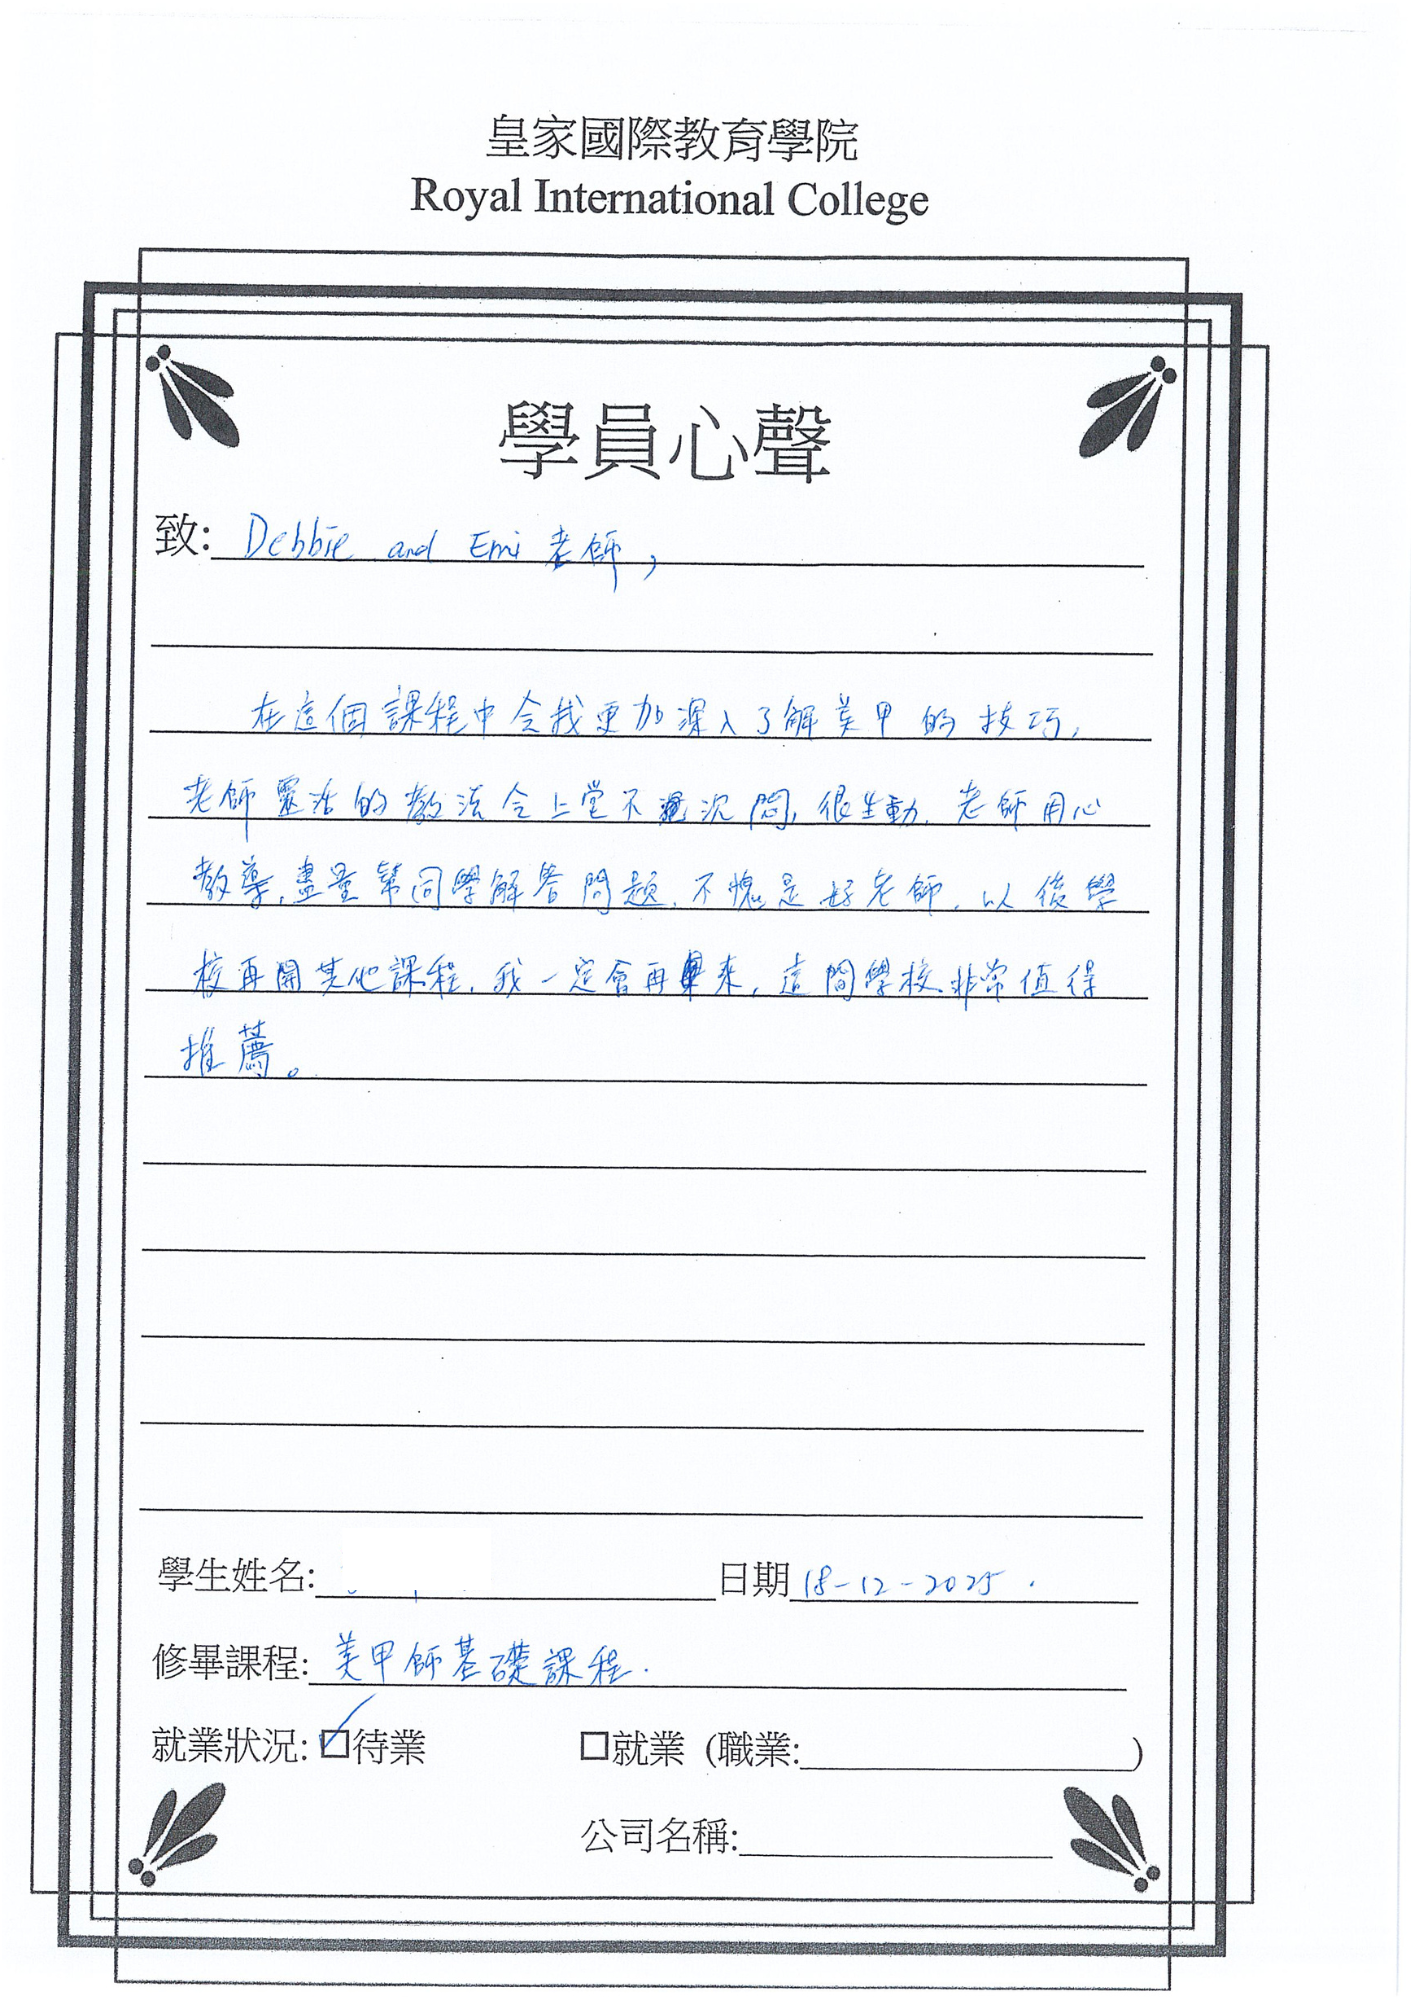 皇家國際教育學院
Royal International College
學員心聲
致: Debbie and Emi 老師,
在這個課程中令我更加深入了解美甲的技巧,
老師靈活的教法令上堂不沉悶,很生動. 老師用心
教導,盡量幫同學解答問題. 不愧是好老師. 以後學
校再開其他課程. 我一定會再來, 這間學校非常值得
推薦。
學生姓名: 日期 18-12-2025.
修畢課程: 美甲師基礎課程.
就業狀況: ☑待業 □就業 (職業: )
公司名稱: